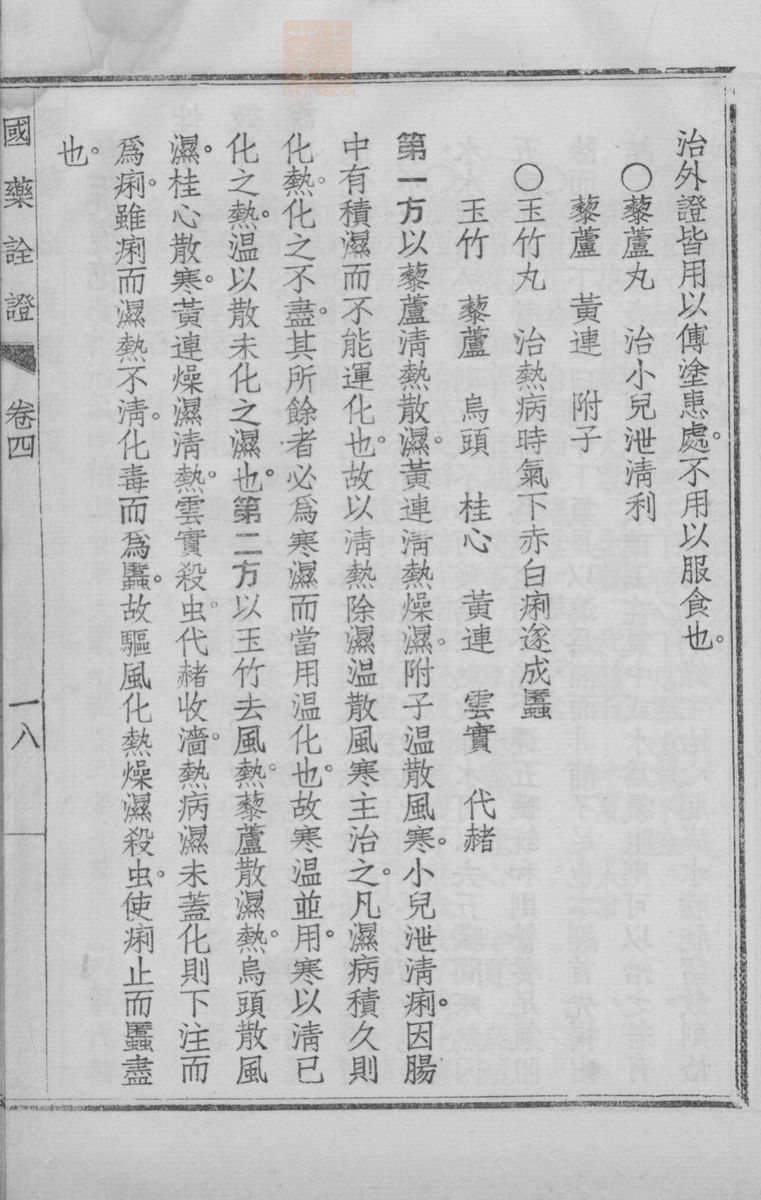 治外證皆用以傅塗患處。不用以服食也。
○藜蘆丸　治小兒泄淸利
藜蘆　黃連　附子
○玉竹丸　治熱病時氣下赤白痢遂成䘌
玉竹　藜蘆　烏頭　桂心　黃連　雲實　代赭
第一方以藜蘆淸熱散濕。黃連淸熱燥濕。附子温散風寒。小兒泄淸痢。因腸
中有積濕而不能運化也。故以淸熱除濕温散風寒主治之。凡濕病積久則
化熱。化之不盡。其所餘者必爲寒濕而當用温化也。故寒温並用。寒以淸已
化之熱。温以散未化之濕也。第二方以玉竹去風熱。藜蘆散濕熱。烏頭散風
濕。桂心散寒。黃連燥濕淸熱。雲實殺虫。代赭收濇。熱病濕未蓋化則下注而
爲痢。雖痢而濕熱不淸。化毒而爲䘌。故驅風化熱燥濕殺虫。使痢止而䘌盡
也。
國藥詮證　卷四　一八